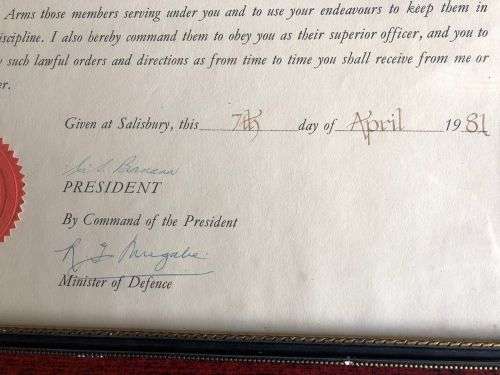 Arms those members serving under you and to use your endeavours to keep them in
iscipline. I also hereby command them to obey you as their superior officer, and you to
such lawful orders and directions as from time to time you shall receive from me or
er.
Given at Salisbury, this 7th day of April 1981
PRESIDENT
By Command of the President
R G Mugabe
Minister of Defence